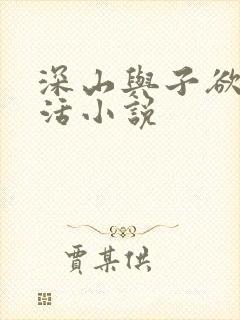 深山與子欲
活小説
賈某供